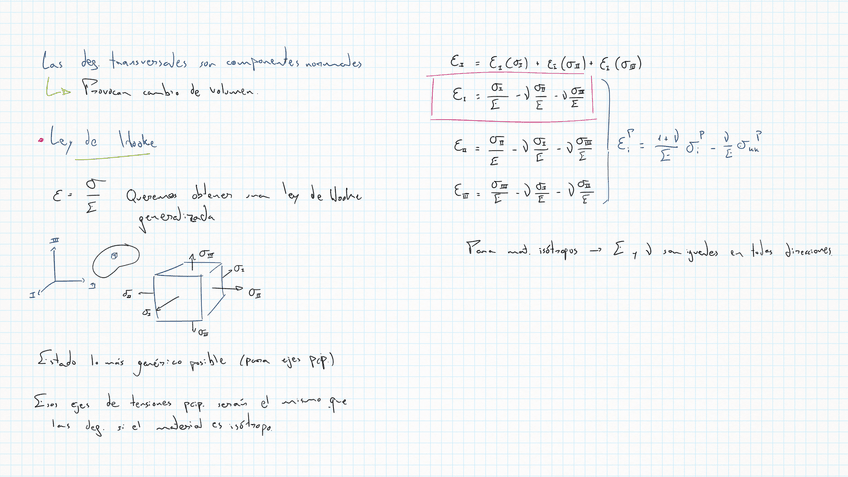 Las deg. transversales son componentes normales
↳ Provocan cambio de volumen.
• Ley de Hooke
ε = σ/E Queremos obtener una ley de Hooke
generalizada
III
I
II
σ_III
σ_I
σ_II
σ_II
σ_I
σ_III
Estado lo más genérico posible (para ejes pcp)
Esos ejes de tensiones pcp. serán el mismo que
las deg. si el material es isótropo.
ε_I = ε_I(σ_I) + ε_I(σ_II) + ε_I(σ_III)
ε_I = σ_I/E - ν σ_II/E - ν σ_III/E
ε_II = σ_II/E - ν σ_I/E - ν σ_III/E
ε_III = σ_III/E - ν σ_I/E - ν σ_II/E
ε_i^P = (1+ν)/E σ_i^P - ν/E σ_kk^P
Para mat. isótropos → E y ν son iguales en todas direcciones